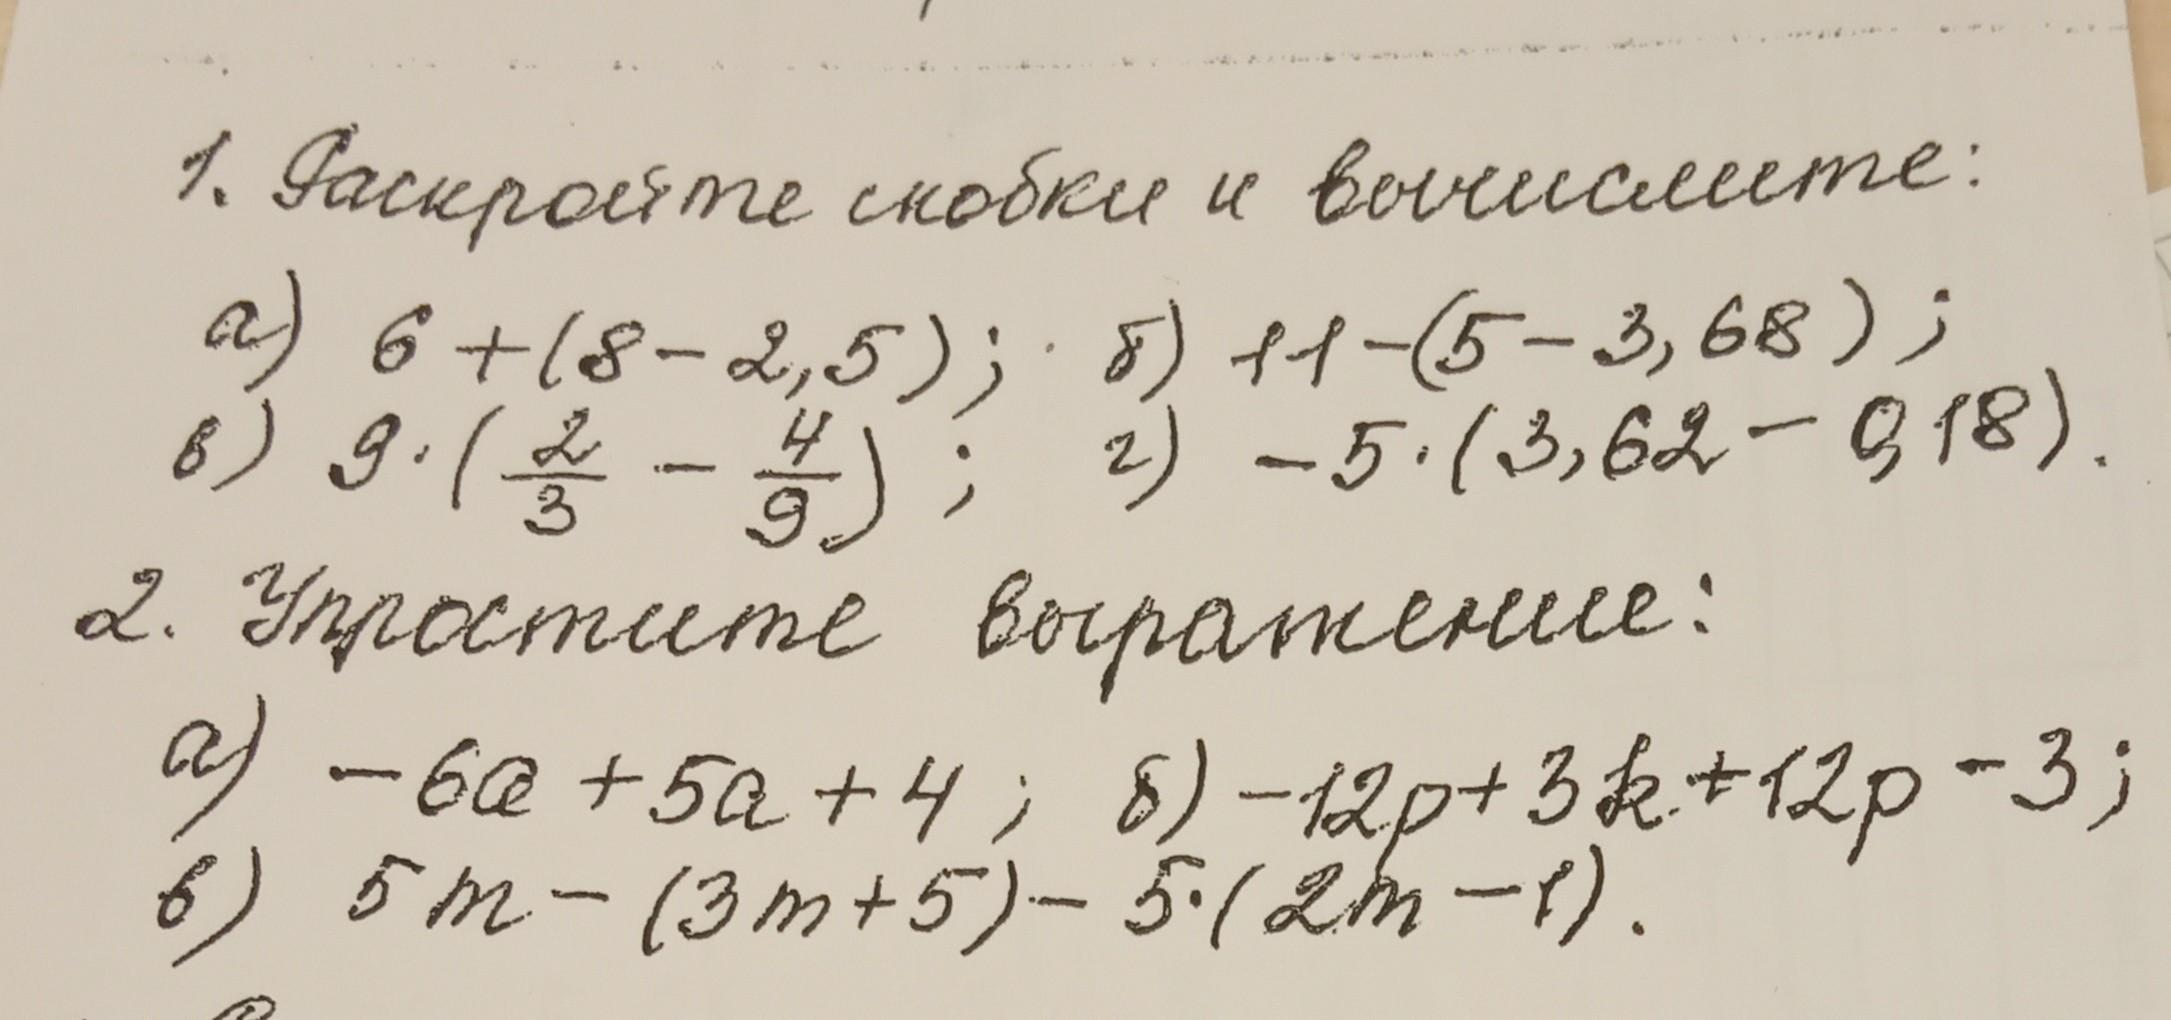 1. Раскройте скобки и вычислите:
а) 6 + (8 - 2,5); б) 11 - (5 - 3,68);
в) 9 · (2/3 - 4/9); г) -5 · (3,62 - 0,18).
2. Упростите выражение:
а) -6a + 5a + 4; б) -12p + 3k + 12p - 3;
в) 5m - (3m + 5) - 5 · (2m - 1).